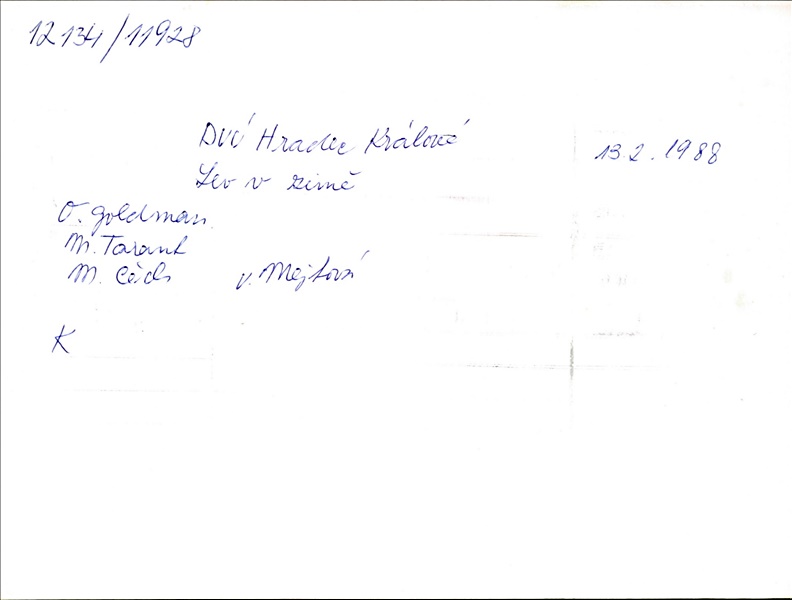 12134/11928
DVÚ Hradec Králové 13.2.1988
Lev v zimě
O. Goldman
M. Tarant
M. Čech v. Mejtová
K